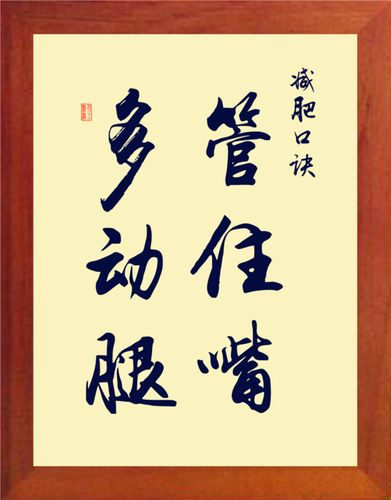 减肥口诀
管住嘴
多动腿